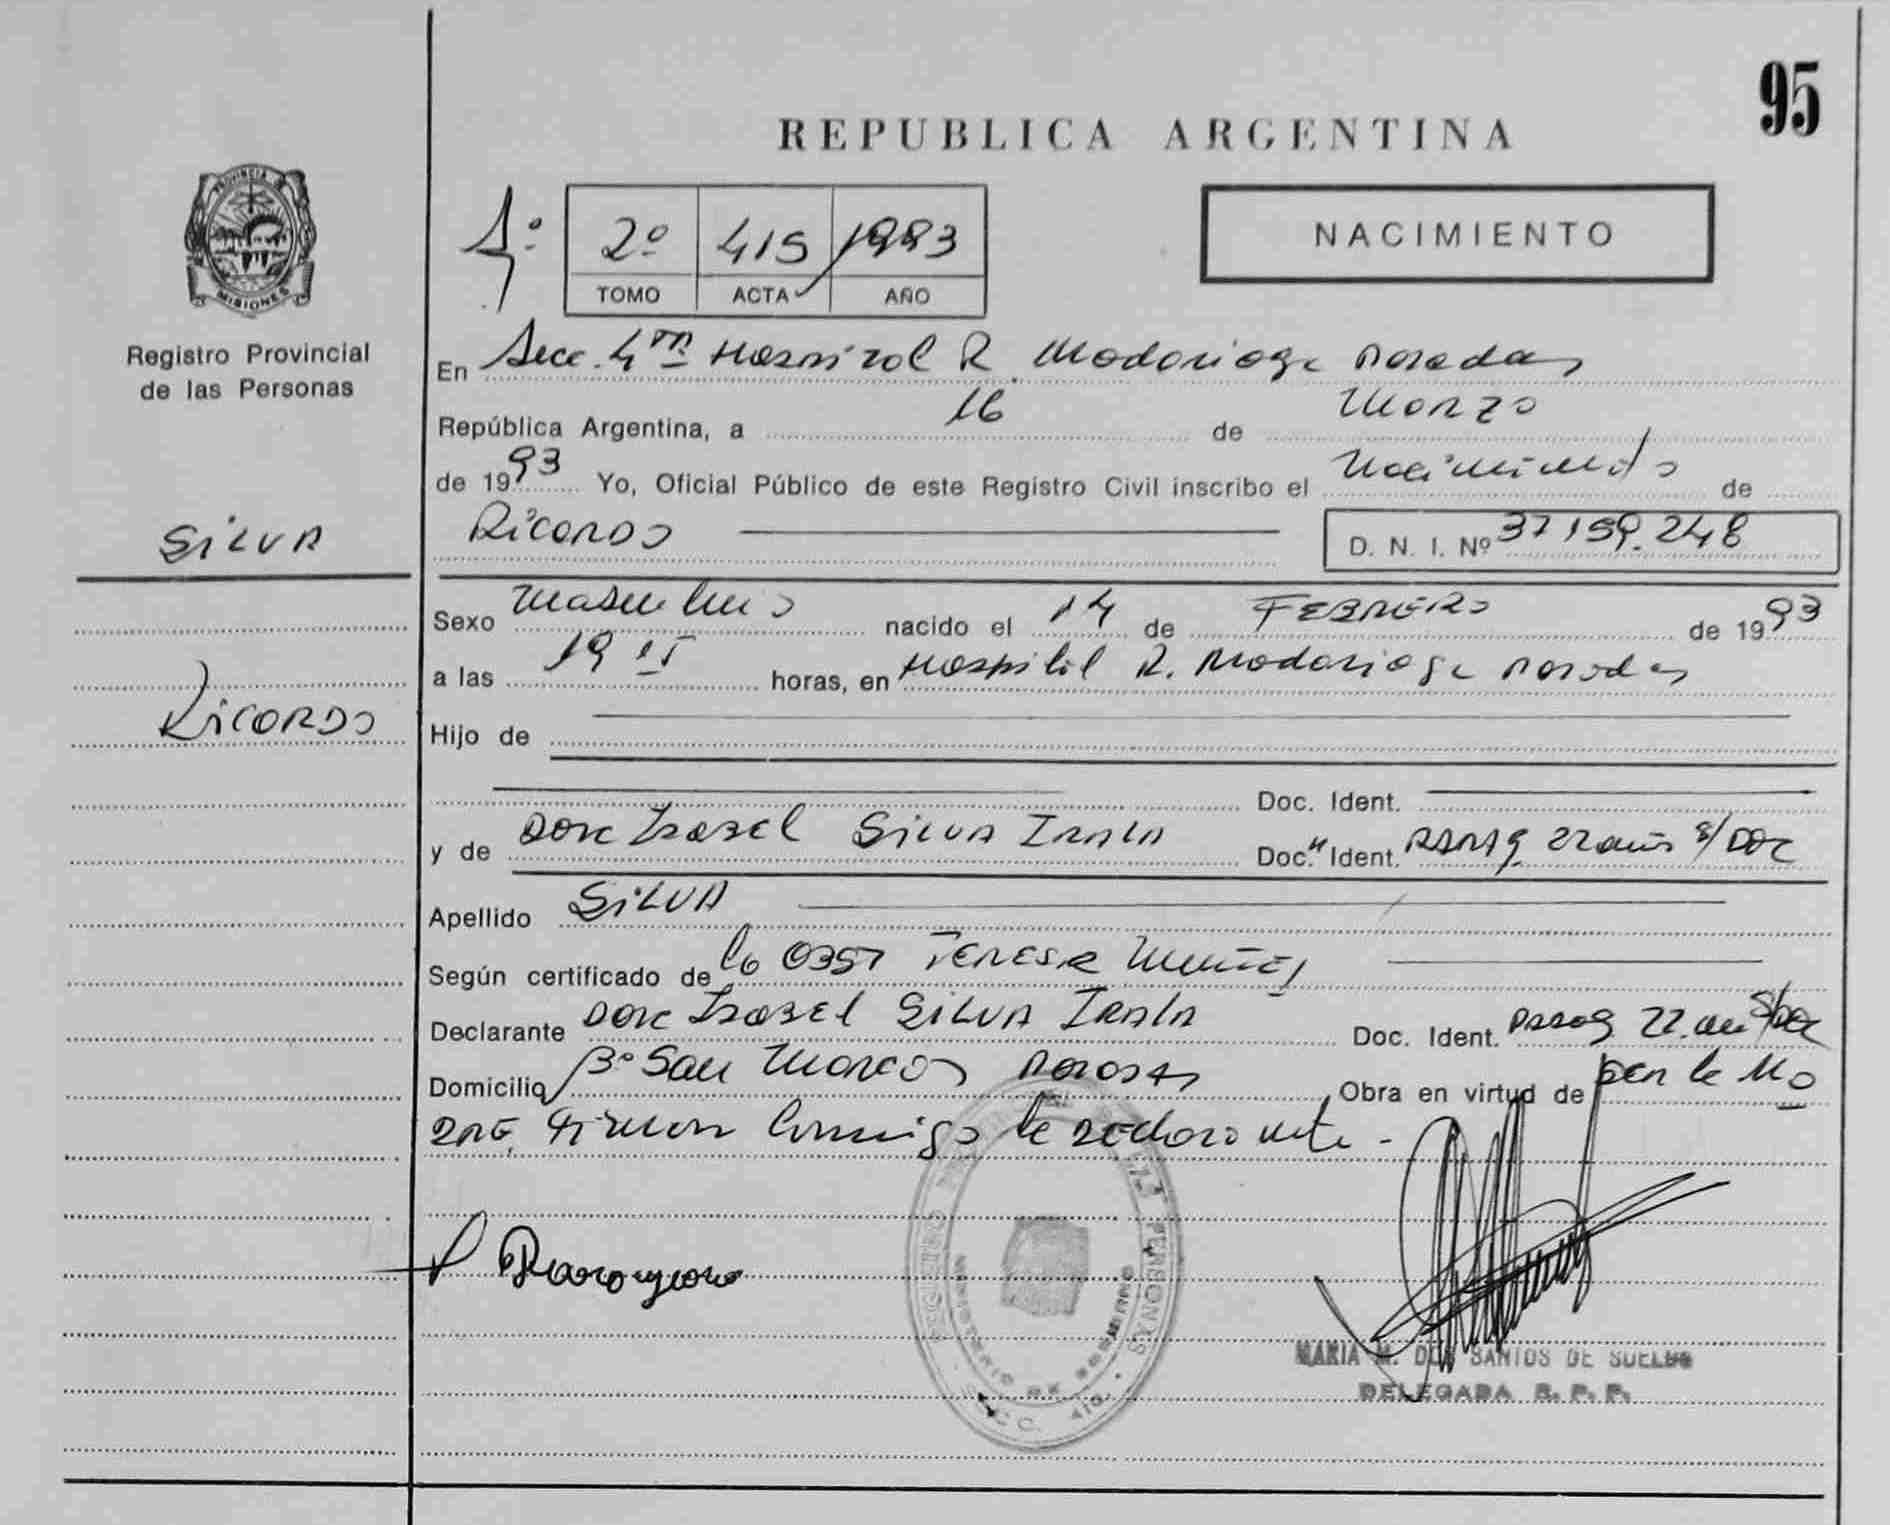 95
REPUBLICA ARGENTINA
PROVINCIA DE
MISIONES
Registro Provincial
de las Personas
1º
2º 415 1993
TOMO ACTA AÑO
NACIMIENTO
En Secc. 4ta Hospital R. Madariaga Posadas
República Argentina, a 16 de Marzo
de 1993 Yo, Oficial Público de este Registro Civil inscribo el Nacimiento de
SILVA
Ricardo D. N. I. Nº 37159.248
Sexo Masculino nacido el 14 de FEBRERO de 1993
a las 19 15 horas, en Hospital R. Madariaga Posadas
Ricardo
Hijo de
Doc. Ident.
y de Doña Isabel SILVA IRALA Doc. Ident. PARAG. 22 años S/DOC
Apellido SILVA
Según certificado de la OBST TERESA Muñoz
Declarante Doña Isabel SILVA IRALA Doc. Ident. Parag 22 años S/Doc
Domicilio Bº San Marcos Posadas Obra en virtud de ser la Ma
dre, firman conmigo la declarante -
REGISTRO PERSONAS
MINISTERIO DE GOBIERNO
SECC. 4ta.
MARIA M. DOS SANTOS DE SUELDO
DELEGADA R. P. P.